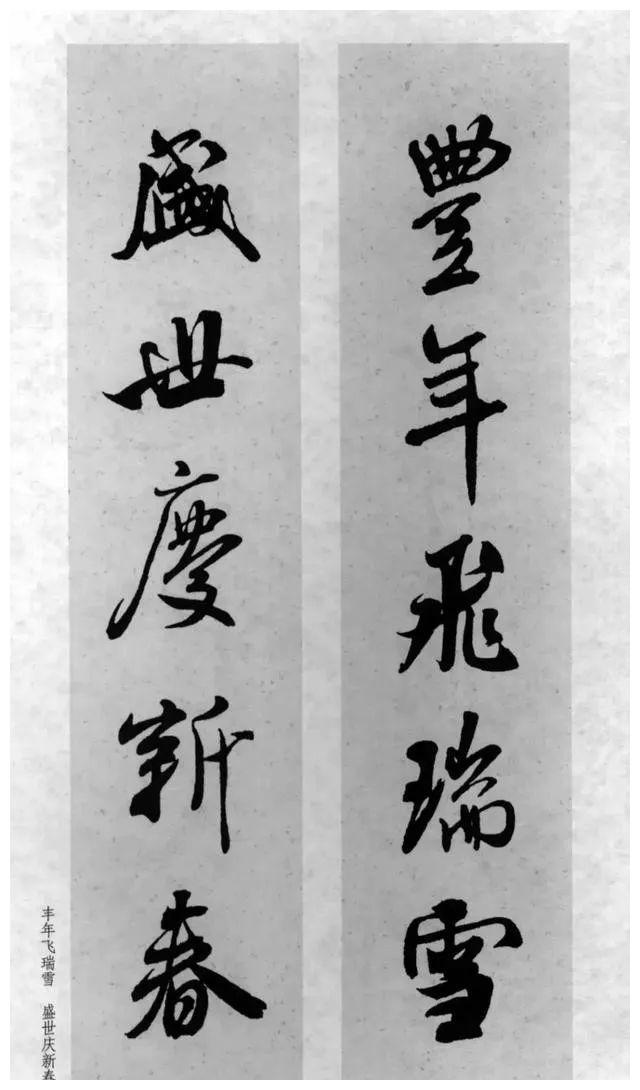 豐年飛瑞雪
盛世慶新春
丰年飞瑞雪 盛世庆新春